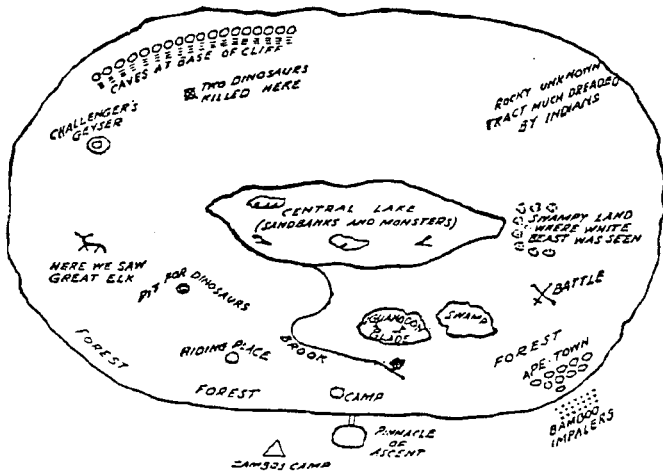 CAVES AT BASE OF CLIFF
TWO DINOSAURS
KILLED HERE
ROCKY UNKNOWN
TRACT MUCH DREADED
BY INDIANS
CHALLENGER'S
GEYSER
CENTRAL LAKE
(SANDBANKS AND MONSTERS)
SWAMPY LAND
WHERE WHITE
BEAST WAS SEEN
HERE WE SAW
GREAT ELK
PIT FOR DINOSAURS
BATTLE
IGUANODON
GLADE
SWAMP
FOREST
HIDING PLACE
BROOK
FOREST
APE-TOWN
FOREST
CAMP
BAMBOO
IMPALERS
PINNACLE
OF
ASCENT
ZAMBOS CAMP